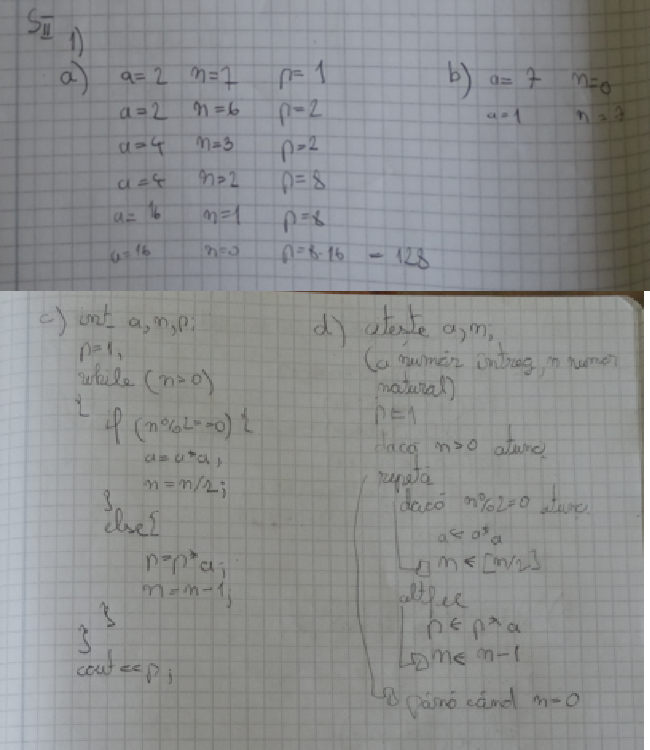 SII
1)
a) a=2 n=7 p=1
a=2 n=6 p=2
a=4 n=3 p=2
a=4 n=2 p=8
a=16 n=1 p=8
a=16 n=0 p=8·16 = 128
b) a=7 n=0
a=1 n=7
c) int a,n,p;
p=1;
while (n>0)
{
if (n%2==0) {
a=a*a;
n=n/2;
}
else{
p=p*a;
n=n-1;
}
}
cout<<p;
d) citeste a,n,
(a număr întreg, n număr
natural)
p←1
dacă n>0 atunci
repetă
dacă n%2=0 atunci
a←a*a
n←[n/2]
altfel
p←p*a
n←n-1
până când n=0